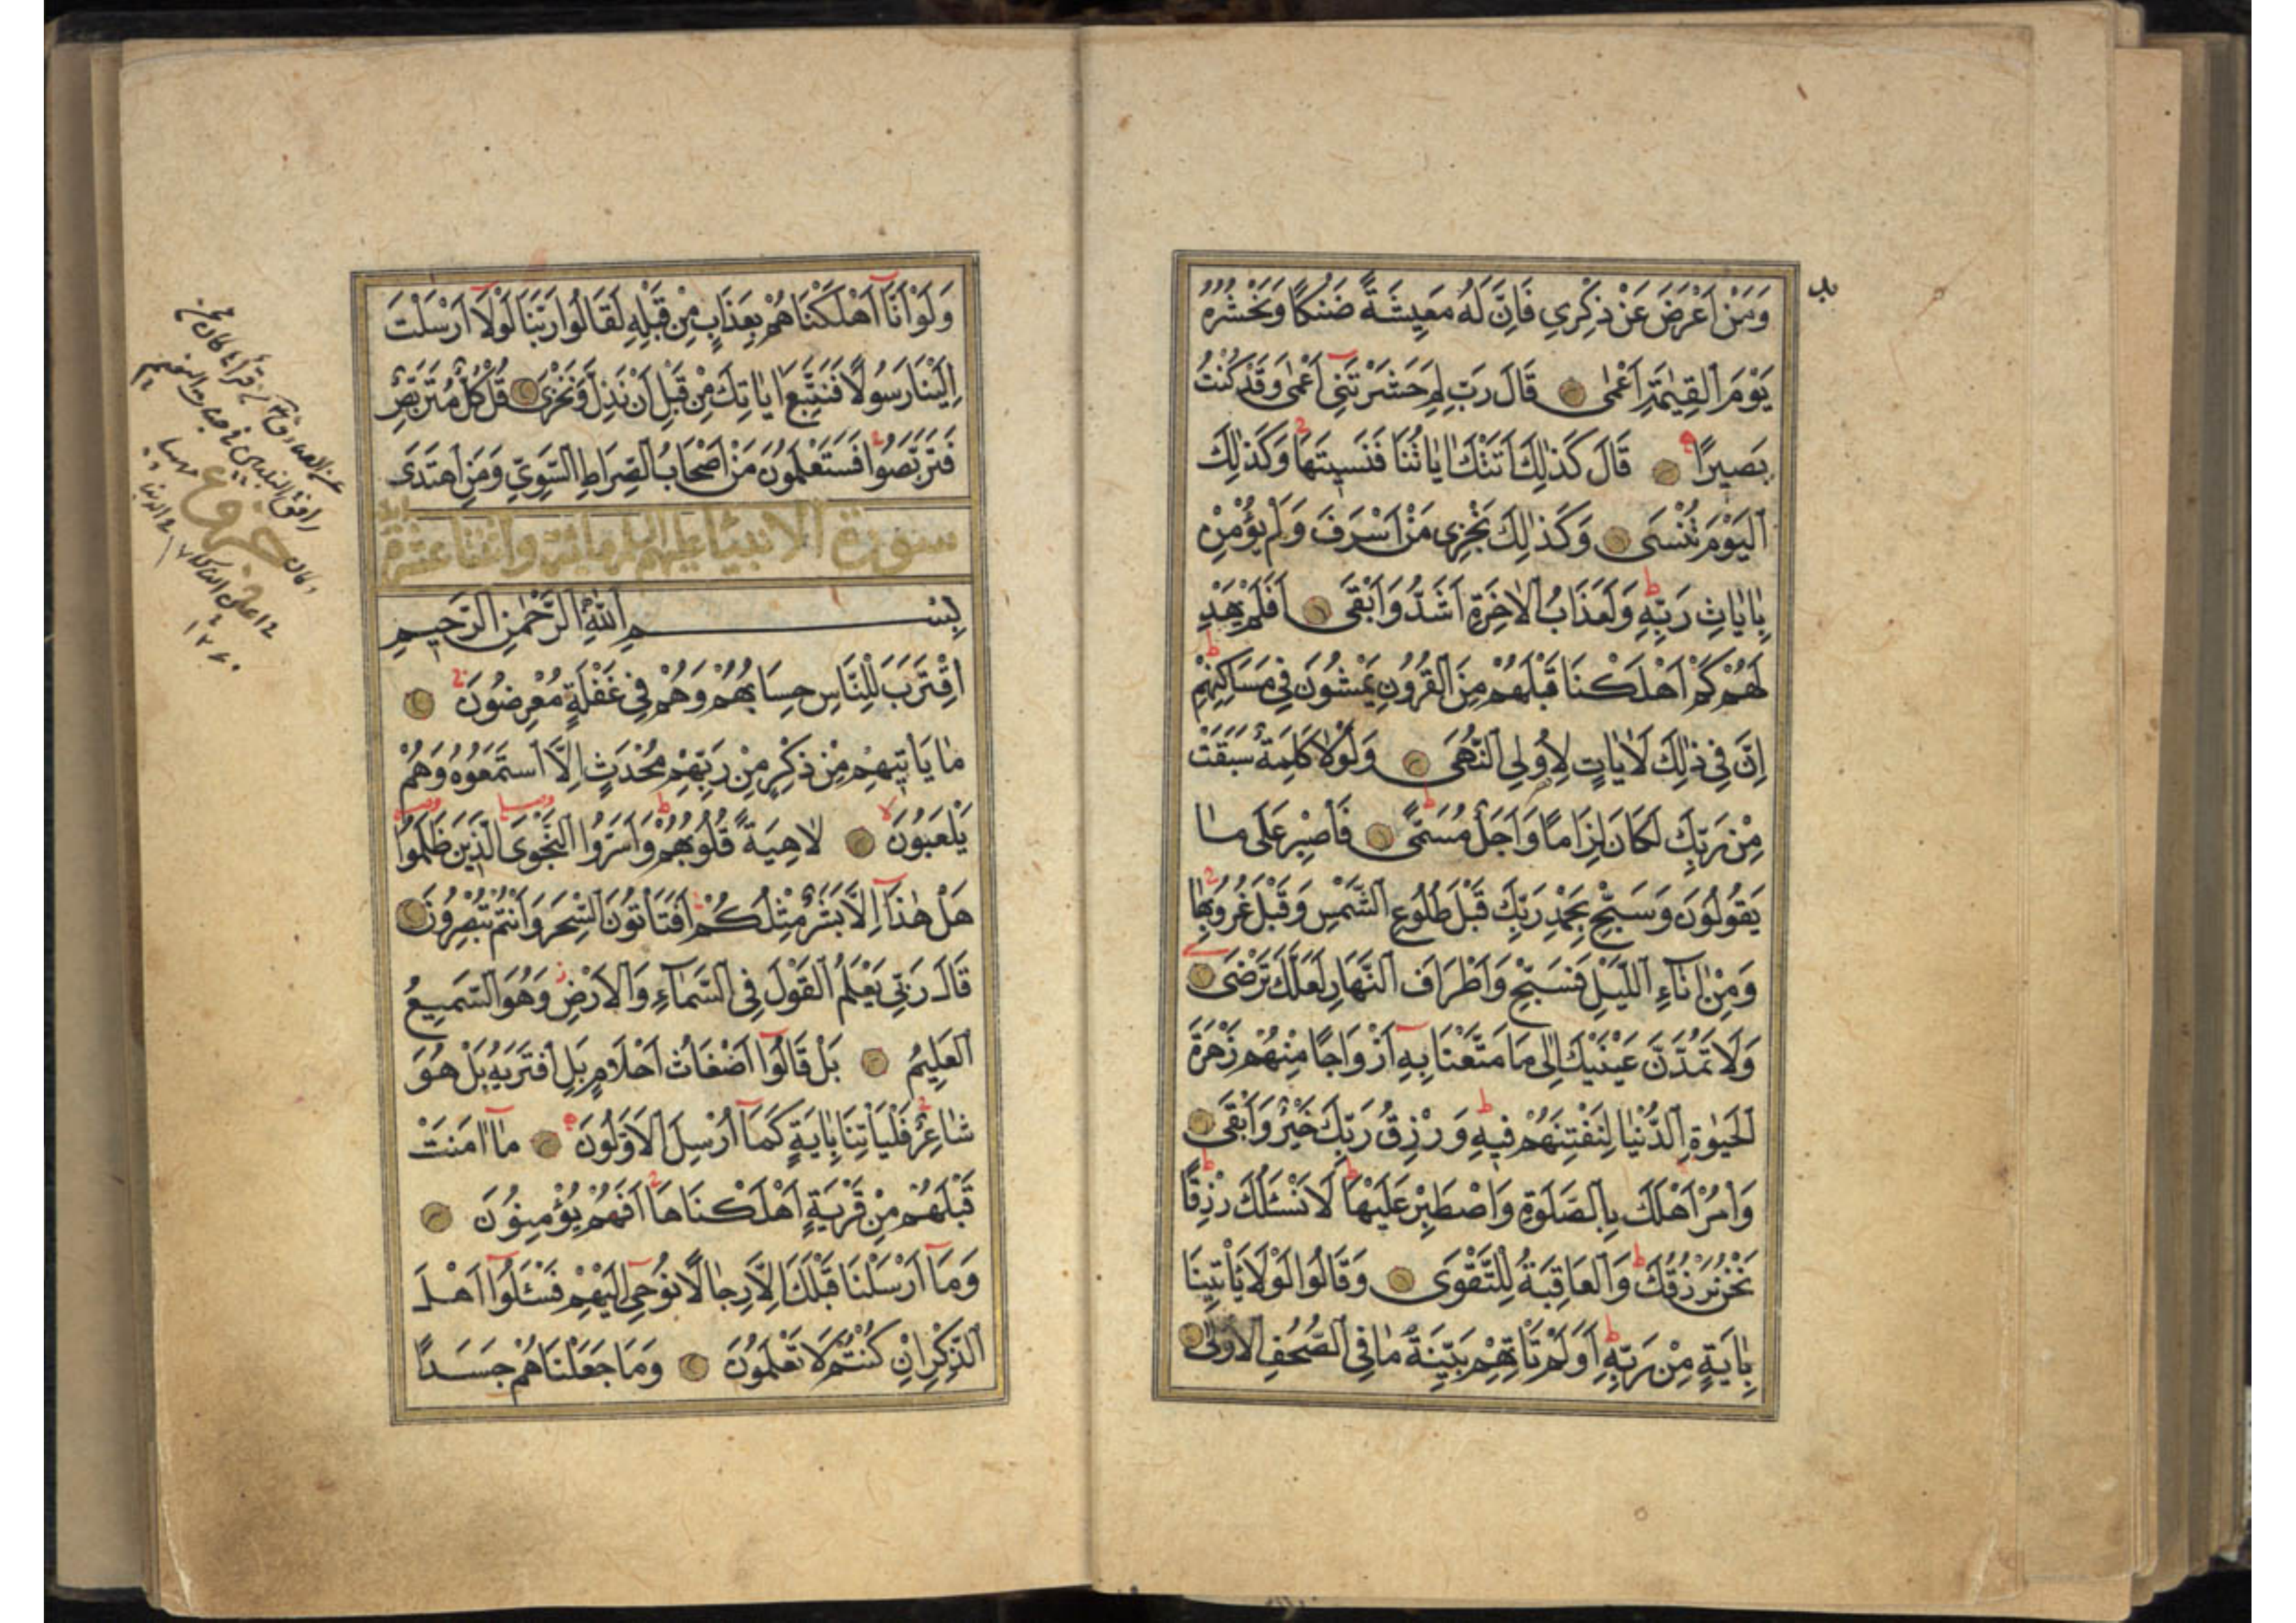 وَمَنْ اَعْرَضَ عَنْ ذِكْرِي فَاِنَّ لَهُ مَعِيشَةً ضَنْكًا وَنَحْشُرُهُ
يَوْمَ الْقِيٰمَةِ اَعْمٰى قَالَ رَبِّ لِمَ حَشَرْتَنِي اَعْمٰى وَقَدْ كُنْتُ
بَصِيرًا قَالَ كَذٰلِكَ اَتَتْكَ اٰيَاتُنَا فَنَسِيتَهَا وَكَذٰلِكَ
الْيَوْمَ تُنْسٰى وَكَذٰلِكَ نَجْزِي مَنْ اَسْرَفَ وَلَمْ يُؤْمِنْ
بِاٰيَاتِ رَبِّهِ وَلَعَذَابُ الْاٰخِرَةِ اَشَدُّ وَاَبْقٰى اَفَلَمْ يَهْدِ
لَهُمْ كَمْ اَهْلَكْنَا قَبْلَهُمْ مِنَ الْقُرُونِ يَمْشُونَ فِي مَسَاكِنِهِمْ
اِنَّ فِي ذٰلِكَ لَاٰيَاتٍ لِاُولِي النُّهٰى وَلَوْلَا كَلِمَةٌ سَبَقَتْ
مِنْ رَبِّكَ لَكَانَ لِزَامًا وَاَجَلٌ مُسَمًّى فَاصْبِرْ عَلٰى مَا
يَقُولُونَ وَسَبِّحْ بِحَمْدِ رَبِّكَ قَبْلَ طُلُوعِ الشَّمْسِ وَقَبْلَ غُرُوبِهَا
وَمِنْ اٰنَاۤءِ اللَّيْلِ فَسَبِّحْ وَاَطْرَافَ النَّهَارِ لَعَلَّكَ تَرْضٰى
وَلَا تَمُدَّنَّ عَيْنَيْكَ اِلٰى مَا مَتَّعْنَا بِهِ اَزْوَاجًا مِنْهُمْ زَهْرَةَ
الْحَيٰوةِ الدُّنْيَا لِنَفْتِنَهُمْ فِيهِ وَرِزْقُ رَبِّكَ خَيْرٌ وَاَبْقٰى
وَاْمُرْ اَهْلَكَ بِالصَّلٰوةِ وَاصْطَبِرْ عَلَيْهَا لَا نَسْـَٔلُكَ رِزْقًا
نَحْنُ نَرْزُقُكَ وَالْعَاقِبَةُ لِلتَّقْوٰى وَقَالُوا لَوْلَا يَأْتِينَا
بِاٰيَةٍ مِنْ رَبِّهِ اَوَلَمْ تَأْتِهِمْ بَيِّنَةُ مَا فِي الصُّحُفِ الْاُولٰى
وَلَوْ اَنَّا اَهْلَكْنَاهُمْ بِعَذَابٍ مِنْ قَبْلِهِ لَقَالُوا رَبَّنَا لَوْلَا اَرْسَلْتَ
اِلَيْنَا رَسُولًا فَنَتَّبِعَ اٰيَاتِكَ مِنْ قَبْلِ اَنْ نَذِلَّ وَنَخْزٰى قُلْ كُلٌّ مُتَرَبِّصٌ
فَتَرَبَّصُوا فَسَتَعْلَمُونَ مَنْ اَصْحَابُ الصِّرَاطِ السَّوِيِّ وَمَنِ اهْتَدٰى
سورة الانبياء عليهم السلام مائة واثنتا عشرة اية
بِسْمِ اللّٰهِ الرَّحْمٰنِ الرَّحِيمِ
اِقْتَرَبَ لِلنَّاسِ حِسَابُهُمْ وَهُمْ فِي غَفْلَةٍ مُعْرِضُونَ
مَا يَأْتِيهِمْ مِنْ ذِكْرٍ مِنْ رَبِّهِمْ مُحْدَثٍ اِلَّا اسْتَمَعُوهُ وَهُمْ
يَلْعَبُونَ لَاهِيَةً قُلُوبُهُمْ وَاَسَرُّوا النَّجْوَى الَّذِينَ ظَلَمُوا
هَلْ هٰذَا اِلَّا بَشَرٌ مِثْلُكُمْ اَفَتَأْتُونَ السِّحْرَ وَاَنْتُمْ تُبْصِرُونَ
قَالَ رَبِّي يَعْلَمُ الْقَوْلَ فِي السَّمَاۤءِ وَالْاَرْضِ وَهُوَ السَّمِيعُ
الْعَلِيمُ بَلْ قَالُوا اَضْغَاثُ اَحْلَامٍ بَلِ افْتَرٰيهُ بَلْ هُوَ
شَاعِرٌ فَلْيَأْتِنَا بِاٰيَةٍ كَمَا اُرْسِلَ الْاَوَّلُونَ مَا اٰمَنَتْ
قَبْلَهُمْ مِنْ قَرْيَةٍ اَهْلَكْنَاهَا اَفَهُمْ يُؤْمِنُونَ
وَمَا اَرْسَلْنَا قَبْلَكَ اِلَّا رِجَالًا نُوحِي اِلَيْهِمْ فَسْـَٔلُوا اَهْلَ
الذِّكْرِ اِنْ كُنْتُمْ لَا تَعْلَمُونَ وَمَا جَعَلْنَاهُمْ جَسَدًا